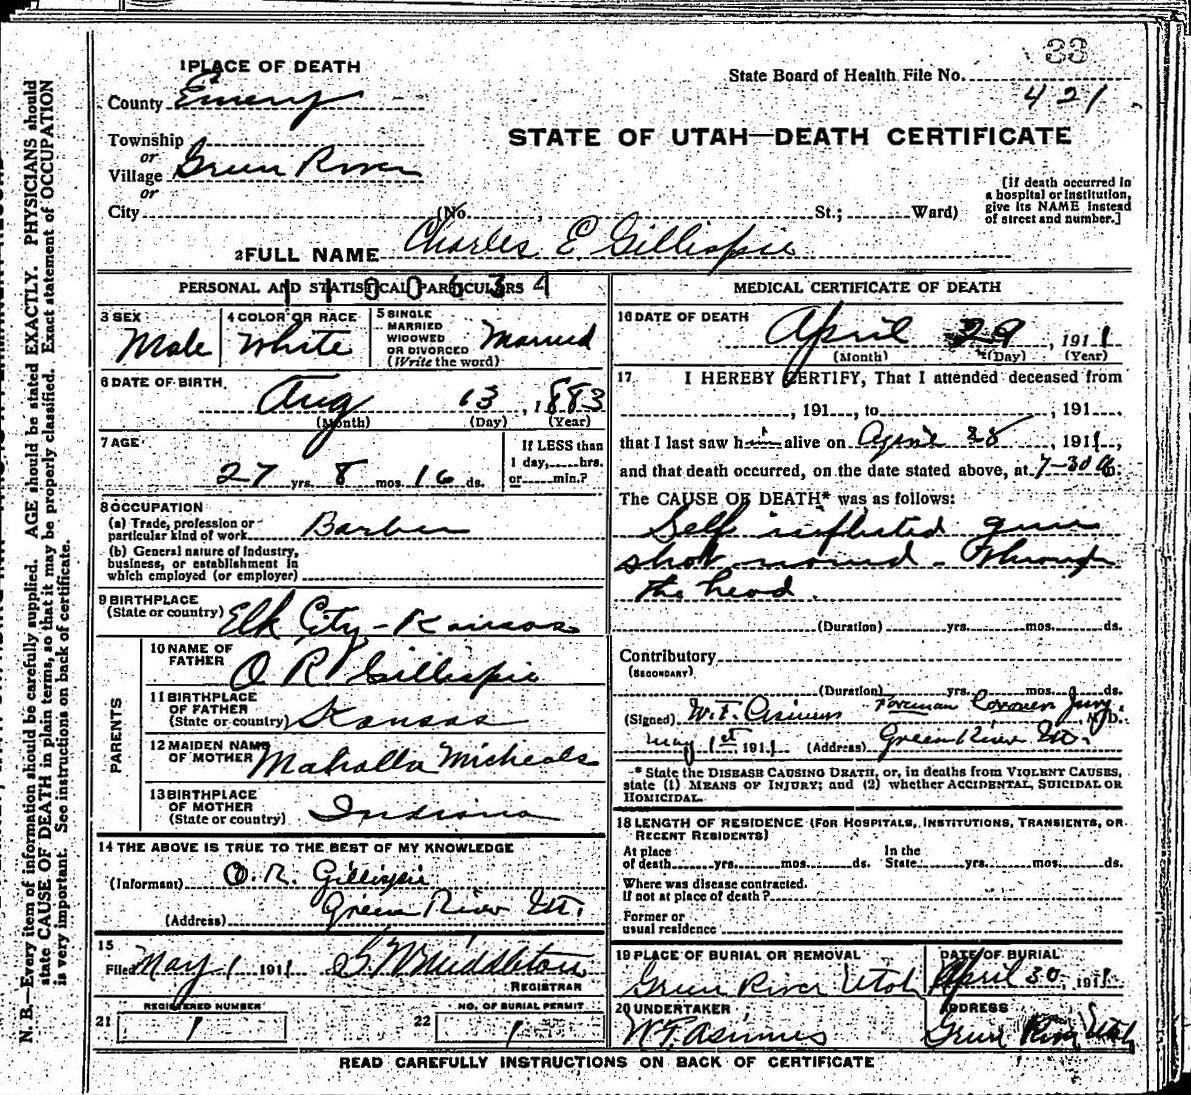 33
State Board of Health File No.
421
1 PLACE OF DEATH
County Emery
Township
or
Village Green River
or
City (No. , St.; Ward)
STATE OF UTAH—DEATH CERTIFICATE
[If death occurred in
a hospital or institution,
give its NAME instead
of street and number.]
2 FULL NAME Charles E Gillispie
PERSONAL AND STATISTICAL PARTICULARS
1100634
3 SEX
Male
4 COLOR OR RACE
White
5 SINGLE
MARRIED
WIDOWED
OR DIVORCED
(Write the word)
Married
6 DATE OF BIRTH
Aug 13, 1883
(Month) (Day) (Year)
7 AGE
27 yrs. 8 mos. 16 ds.
If LESS than
1 day, hrs.
or min.?
8 OCCUPATION
(a) Trade, profession or
particular kind of work Barber
(b) General nature of industry,
business, or establishment in
which employed (or employer)
9 BIRTHPLACE
(State or country) Elk City - Kansas
PARENTS
10 NAME OF
FATHER O R Gillispie
11 BIRTHPLACE
OF FATHER
(State or country) Kansas
12 MAIDEN NAME
OF MOTHER Mahalla Micheals
13 BIRTHPLACE
OF MOTHER
(State or country) Indiana
14 THE ABOVE IS TRUE TO THE BEST OF MY KNOWLEDGE
(Informant) O. R. Gillispie
(Address) Green River Ut.
15
Filed May 1 1911 S W Middleton
REGISTRAR
REGISTERED NUMBER
21 1
NO. OF BURIAL PERMIT
22 1
MEDICAL CERTIFICATE OF DEATH
16 DATE OF DEATH
April 29, 1911
(Month) (Day) (Year)
17 I HEREBY CERTIFY, That I attended deceased from
, 191 , to , 191
that I last saw him alive on April 28, 1911,
and that death occurred, on the date stated above, at 7-30 a.
The CAUSE OF DEATH* was as follows:
Self inflicted gun
shot wound - through
the head.
(Duration) yrs. mos. ds.
Contributory
(SECONDARY)
(Duration) yrs. mos. ds.
(Signed) W. F. Asimus Foreman Coroner Jury M.D.
May 1st 1911 (Address) Green River Ut.
* State the DISEASE CAUSING DEATH, or, in deaths from VIOLENT CAUSES,
state (1) MEANS OF INJURY; and (2) whether ACCIDENTAL, SUICIDAL OR
HOMICIDAL.
18 LENGTH OF RESIDENCE (FOR HOSPITALS, INSTITUTIONS, TRANSIENTS, OR
RECENT RESIDENTS)
At place
of death yrs. mos. ds.
In the
State yrs. mos. ds.
Where was disease contracted.
If not at place of death?
Former or
usual residence
19 PLACE OF BURIAL OR REMOVAL
Green River Utah
DATE OF BURIAL
April 30 1911
20 UNDERTAKER
W F Asimus
ADDRESS
Green River Utah
READ CAREFULLY INSTRUCTIONS ON BACK OF CERTIFICATE
N. B.—Every item of information should be carefully supplied. AGE should be stated EXACTLY. PHYSICIANS should
state CAUSE OF DEATH in plain terms, so that it may be properly classified. Exact statement of OCCUPATION
is very important. See instructions on back of certificate.